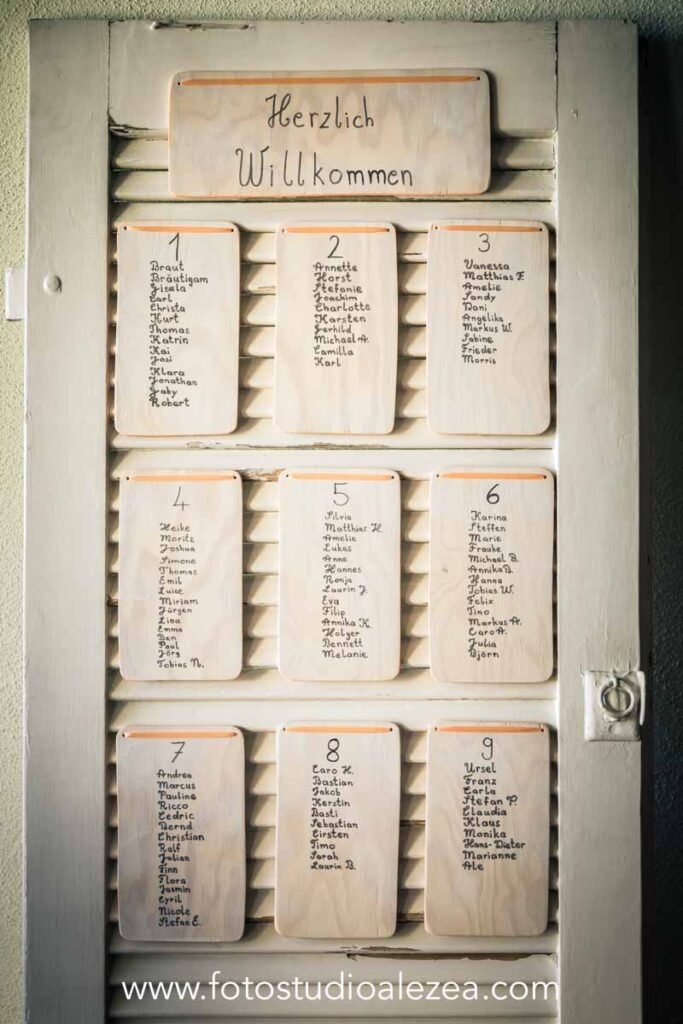 Herzlich
Willkommen
1
Braut
Bräutigam
Gisela
Carl
Christa
Kurt
Thomas
Katrin
Kai
Josi
Klara
Jonathan
Gaby
Robert
2
Annette
Horst
Stefanie
Joachim
Charlotte
Karsten
Gerhild
Michael A.
Camilla
Karl
3
Vanessa
Matthias F.
Amelie
Sandy
Dani
Angelika
Markus W.
Sabine
Frieder
Morris
4
Heike
Moritz
Joshua
Simone
Thomas
Emil
Luise
Miriam
Jürgen
Lina
Emma
Ben
Paul
Jörg
Tobias N.
5
Silvia
Matthias H.
Amelie
Lukas
Anne
Hannes
Ronja
Laurin J.
Eva
Filip
Annika K.
Holger
Bennett
Melanie
6
Karina
Steffen
Marie
Frauke
Michael B.
Annika B.
Hanna
Tobias W.
Felix
Tino
Markus A.
Caro A.
Julia
Björn
7
Andrea
Marcus
Pauline
Ricco
Cedric
Bernd
Christian
Ralf
Julian
Finn
Flora
Jasmin
Cyril
Nicole
Stefan E.
8
Caro H.
Bastian
Jakob
Kerstin
Basti
Sebastian
Cirsten
Timo
Sarah
Laurin B.
9
Ursel
Franz
Carla
Stefan P.
Claudia
Klaus
Monika
Hans-Dieter
Marianne
Ale
www.fotostudioalezea.com